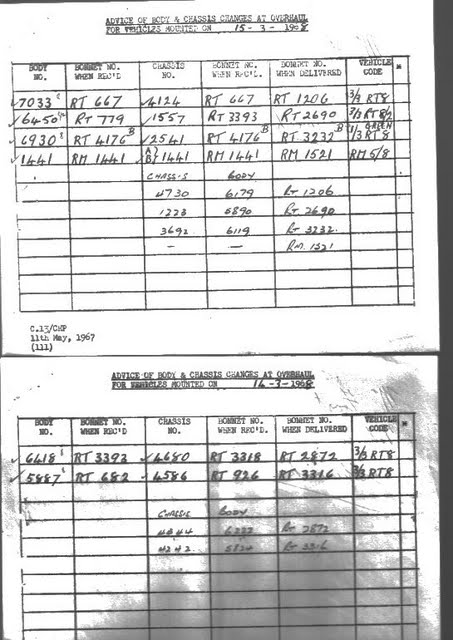 ADVICE OF BODY & CHASSIS CHANGES AT OVERHAUL
FOR VEHICLES MOUNTED ON 15-3-1968
BODY NO. BONNET NO. WHEN REC'D CHASSIS NO. BONNET NO. WHEN REC'D. BONNET NO. WHEN DELIVERED VEHICLE CODE *
✓7033 RT 667 ✓4124 RT 667 RT 1206 3/3 RT8
✓6450 RT 779 ✓1557 RT 3393 RT 2690 3/3 RT8/2
GREEN
✓6930 RT 4176 B ✓2541 RT 4176 B RT 3232 B 1/3 RT8
✓1441 RM 1441 A} B} 1441 RM 1441 RM 1521 RM 5/8
CHASSIS BODY
4730 6179 RT 1206
1223 5890 RT 2690
3692 6119 RT 3232
— — RM 1521
C.13/CMP
11th May, 1967
(111)
ADVICE OF BODY & CHASSIS CHANGES AT OVERHAUL
FOR VEHICLES MOUNTED ON 14-3-1968
BODY NO. BONNET NO. WHEN REC'D CHASSIS NO. BONNET NO. WHEN REC'D. BONNET NO. WHEN DELIVERED VEHICLE CODE *
✓6418 RT 3393 ✓4680 RT 3318 RT 2872 3/3 RT8
✓5887 RT 682 ✓4586 RT 926 RT 3316 3/3 RT8
CHASSIS BODY
4044 6222 RT 2872
4242 5824 RT 3316